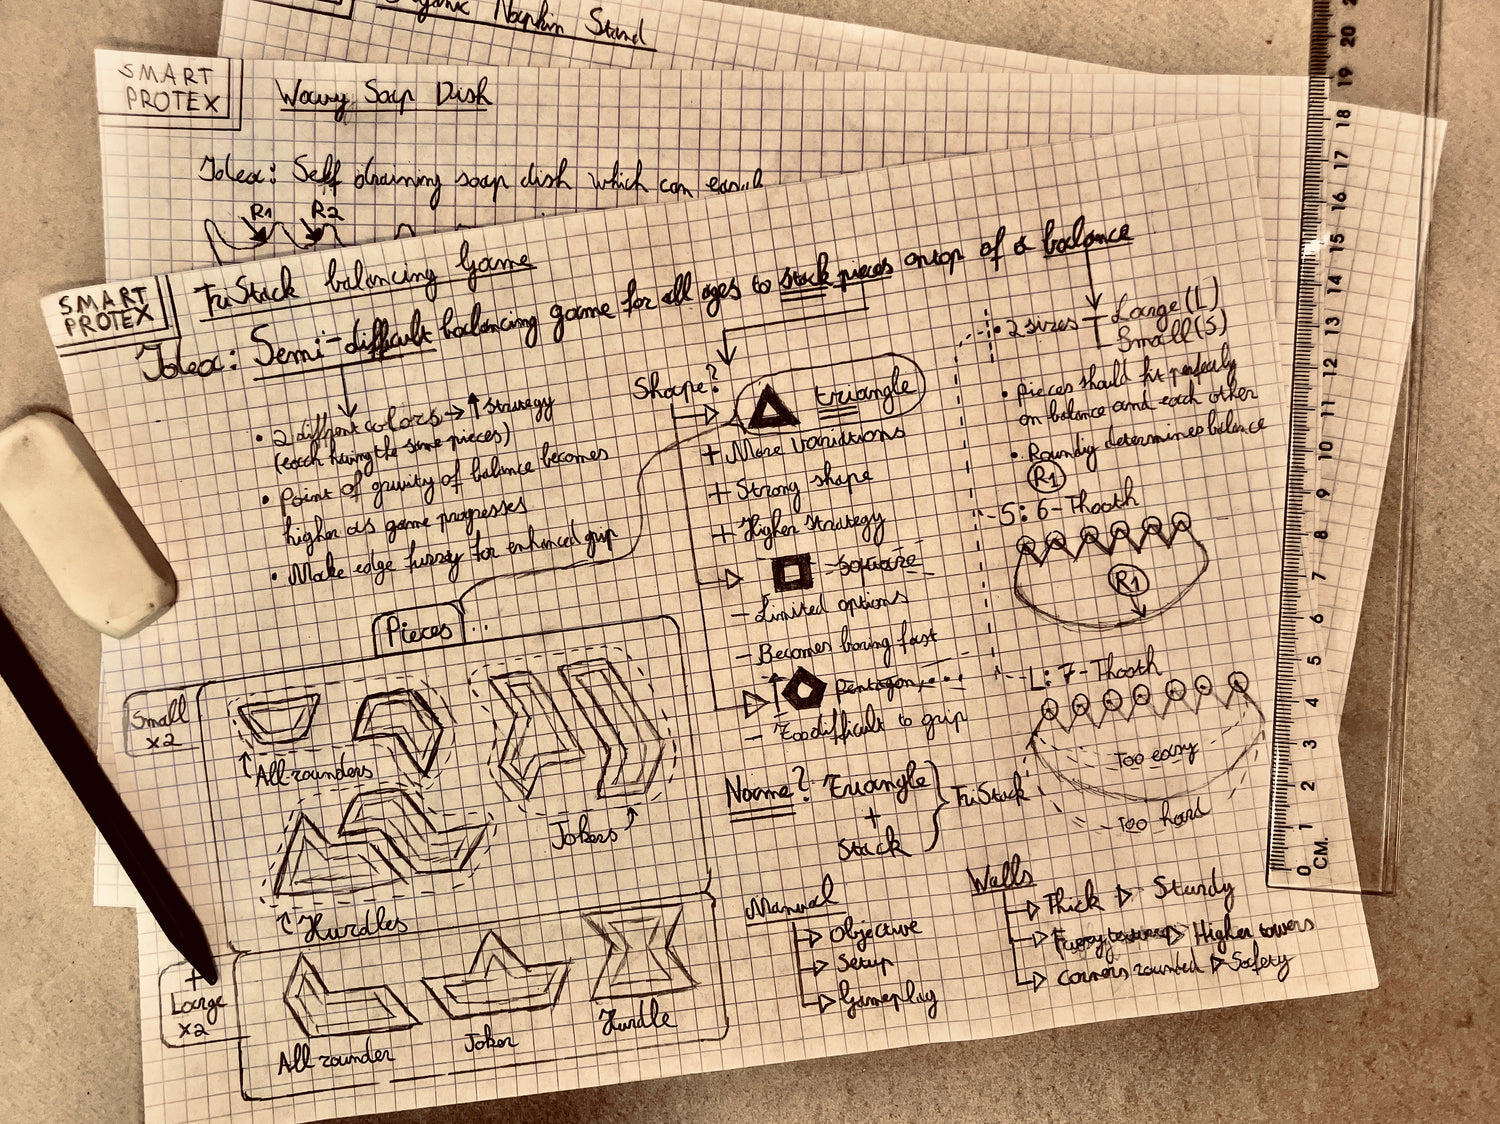 Organic Napkin Stand
SMART
PROTEX
Wavy Soap Dish
Idea: Self draining soap dish which can
R1 R2
SMART
PROTEX
TriStack balancing Game
Idea: Semi-difficult balancing game for all ages to stack pieces ontop of a balance
• 2 different colors → ↑ strategy
(each having the same pieces)
• Point of gravity of balance becomes
higher as game progresses
• Make edge fuzzy for enhanced grip
Shape?
triangle
+ More variations
+ Strong shape
+ Higher strategy
Square
- Limited options
- Becomes boring fast
Pentagon
- Too difficult to grip
• 2 sizes
Large (L)
Small (S)
• Pieces should fit perfectly
on balance and each other
• Rounding determines balance
R1
-S: 6-Thooth
R1
-L: 7-Thooth
Too easy
Too hard
Pieces
Small
x2
All rounders
Jokers
Hurdles
+
Large
x2
All rounder
Joker
Hurdle
Name? Triangle
+
Stack
TriStack
Manual
Objective
Setup
Gameplay
Walls
Thick ▷ Sturdy
Fuzzy texture ▷ Higher towers
Corners rounded ▷ Safety
0 CM. 1 2 3 4 5 6 7 8 9 10 11 12 13 14 15 16 17 18 19 20